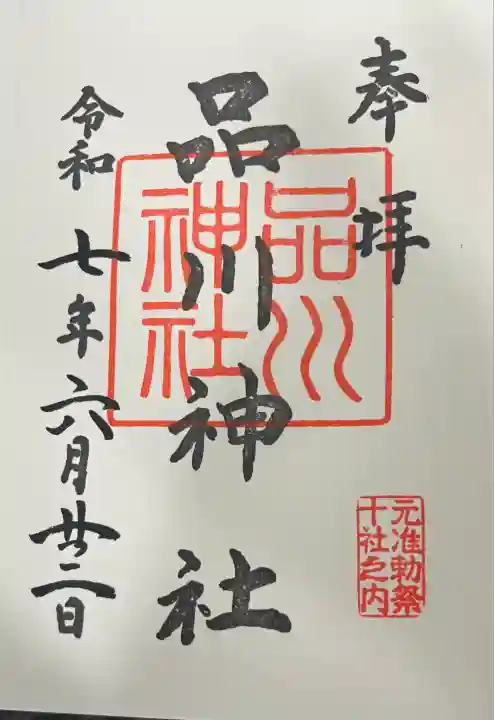 奉拝
品川神社
品川
神社
令和七年六月廿二日
元准勅祭
十社之内